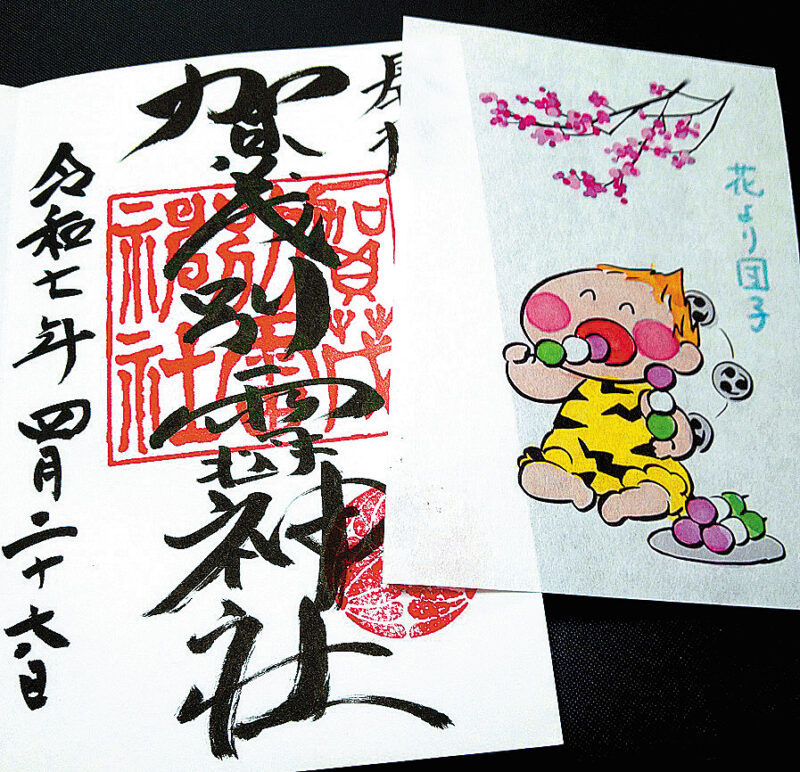 賀茂別雷神社
賀茂
別雷
神社
令和七年四月二十六日
花より団子